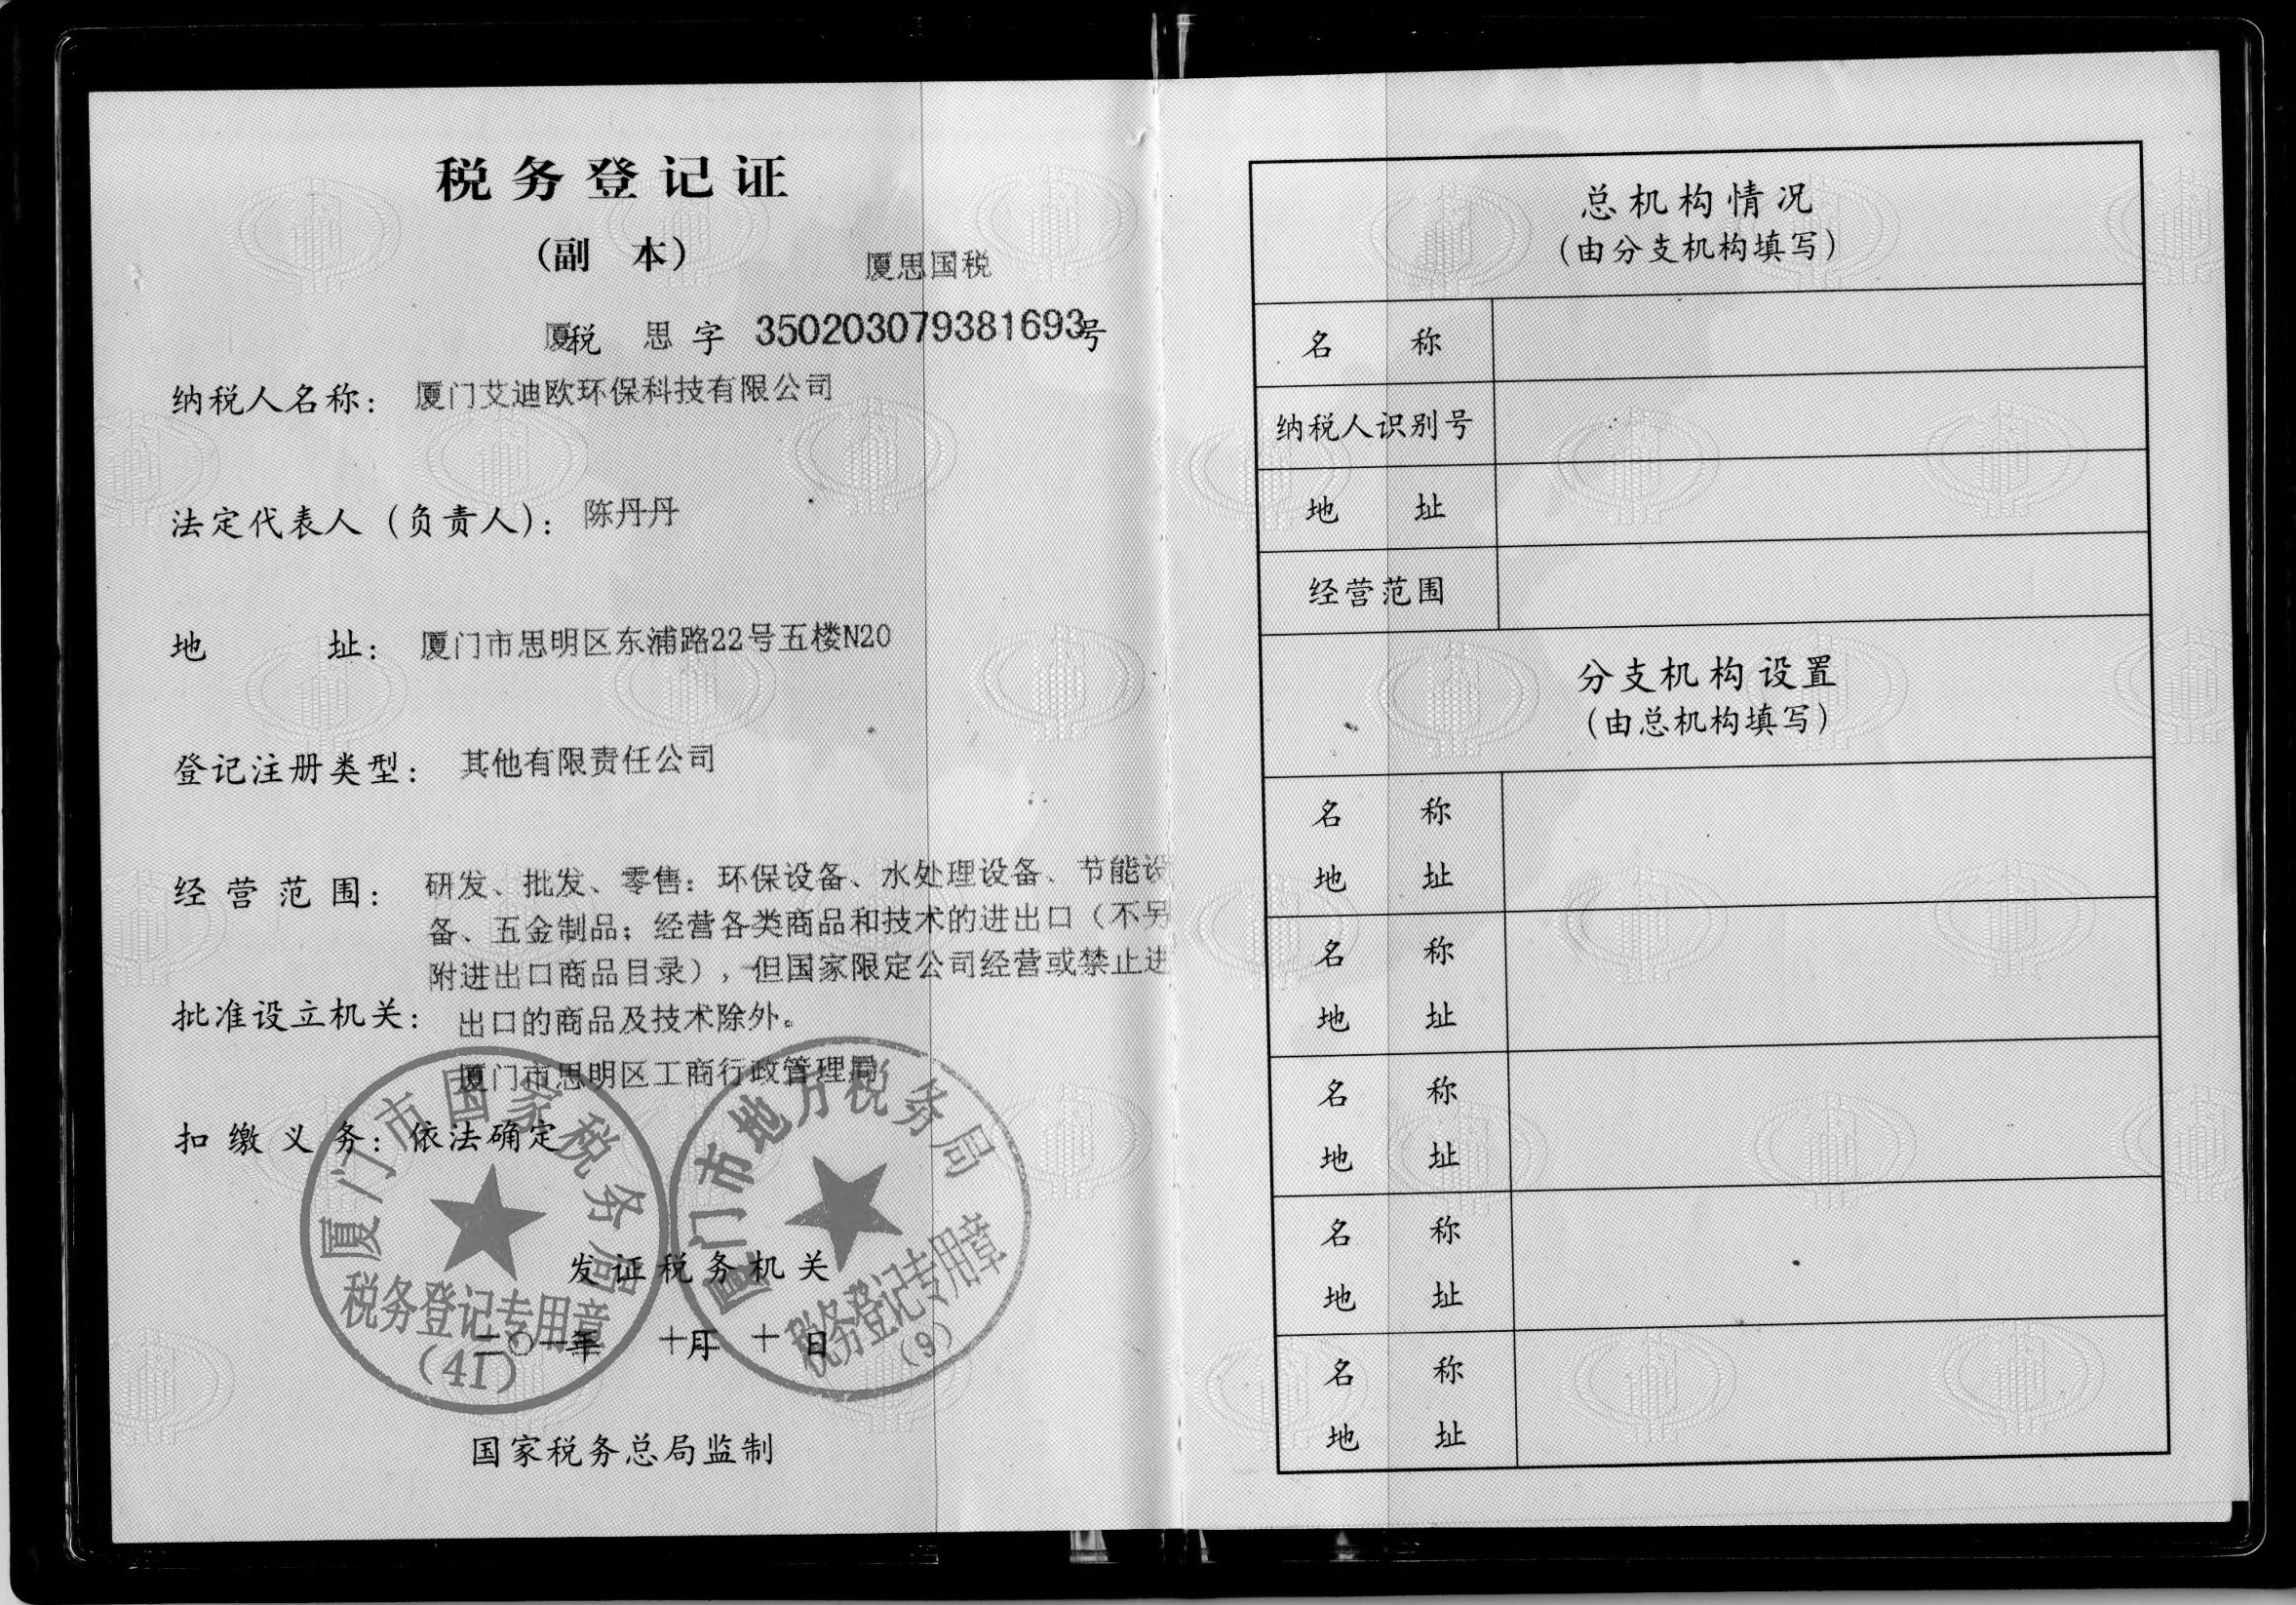 税务登记证
（副 本）
厦思国税
厦税 思 字 350203079381693号
纳税人名称： 厦门艾迪欧环保科技有限公司
法定代表人（负责人）： 陈丹丹
地 址： 厦门市思明区东浦路22号五楼N20
登记注册类型： 其他有限责任公司
经营范围： 研发、批发、零售：环保设备、水处理设备、节能设
备、五金制品；经营各类商品和技术的进出口（不另
附进出口商品目录），但国家限定公司经营或禁止进
出口的商品及技术除外。
批准设立机关：
厦门市思明区工商行政管理局
扣缴义务： 依法确定
厦门市国家税务局
税务登记专用章
（41）
厦门市地方税务局
税务登记专用章
（9）
发证税务机关
年 十月 十 日
国家税务总局监制
总机构情况
（由分支机构填写）
名 称
纳税人识别号
地 址
经营范围
分支机构设置
（由总机构填写）
名 称
地 址
名 称
地 址
名 称
地 址
名 称
地 址
名 称
地 址